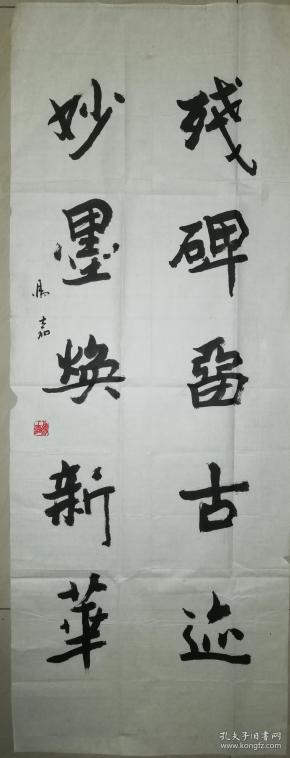 残碑留古迹
妙墨焕新華
嘉
孔夫子旧书网
www.kongfz.com